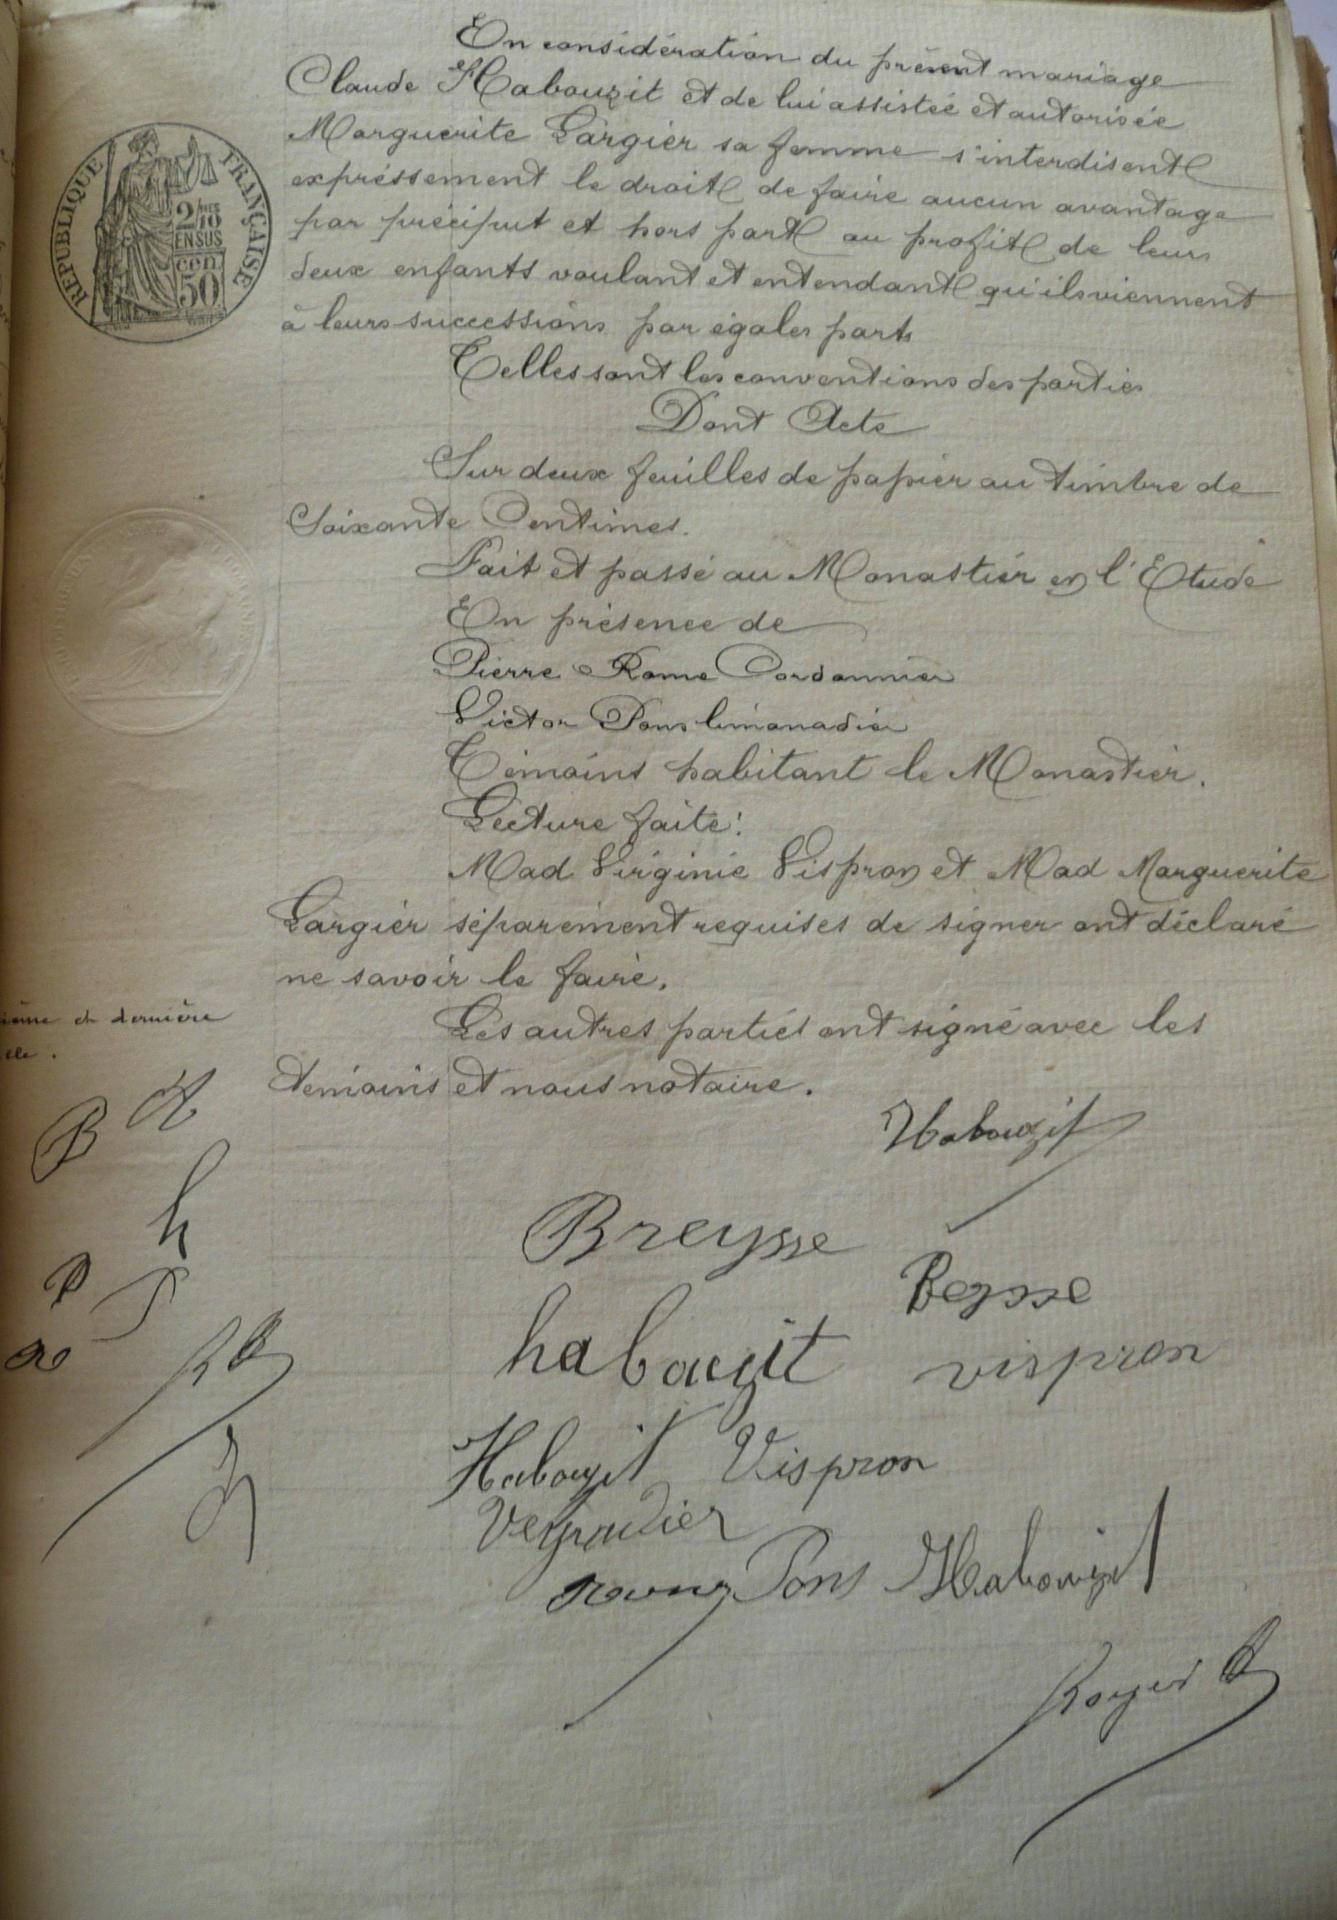 En considération du présent mariage
Claude Habouzit et de lui assistée et autorisée
Marguerite Largier sa femme s'interdisent
expréssement le droit de faire aucun avantage
par préciput et hors part au profit de leurs
deux enfants voulant et entendant qu'ils viennent
à leurs successions par égales parts
Telles sont les conventions des parties
Dont Acte
Sur deux feuilles de papier au timbre de
Soixante Centimes.
Fait et passé au Monastier en l'Etude
En présence de
Pierre Rome Cordonnier
Victor Pons limonadier
Témoins habitant le Monastier.
Lecture faite:
Mad Virginie Vispron et Mad Marguerite
Largier séparément requises de signer ont déclaré
ne savoir le faire.
Les autres parties ont signé avec les
témoins et nous notaire.
REPUBLIQUE FRANÇAISE
2/10
EN SUS
cen
50
ième et dernière
Habouzit
Breysse
Beysse
habouzit
vispron
Habouzit Vispron
Veyradier
Pons Habouzit